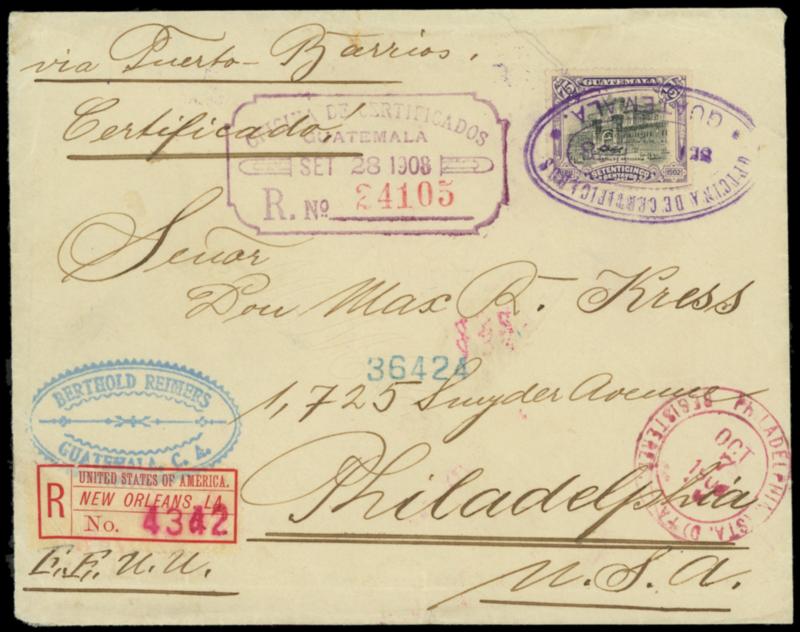 via Puerto-Barrios.
Certificado!
OFICINA DE CERTIFICADOS
GUATEMALA
SET 28 1908
R. No 24105
75 GUATEMALA 75
SETENTICINCO
CENTAVOS
1902
OFICINA DE CERTIFICADOS
GUATEMALA.
Señor
Don Max R. Kress
36424
1,725 Snyder Avenue
BERTHOLD REIMERS
GUATEMALA, C. A.
PHILADELPHIA, PA.
REGISTERED
OCT
7
Philadelphia
R
UNITED STATES OF AMERICA.
NEW ORLEANS, LA.
No. 4342
E.E.U.U.
U.S.A.